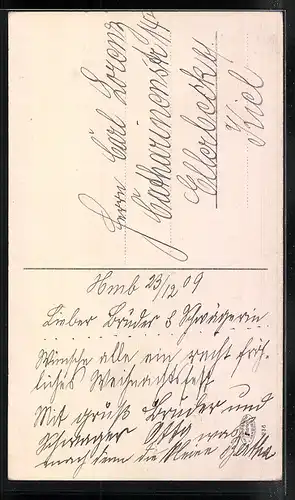 Herrn Carl Lorenz
Catharinenstr
Ellerbeck b/
Kiel
Hmb 23/12 09
Lieber Bruder & Schwägerin
Wünsche alle ein recht fröh-
liches Weihnachtsfest
Mit Gruß Bruder und
Schwager Otto was
macht denn die kleine